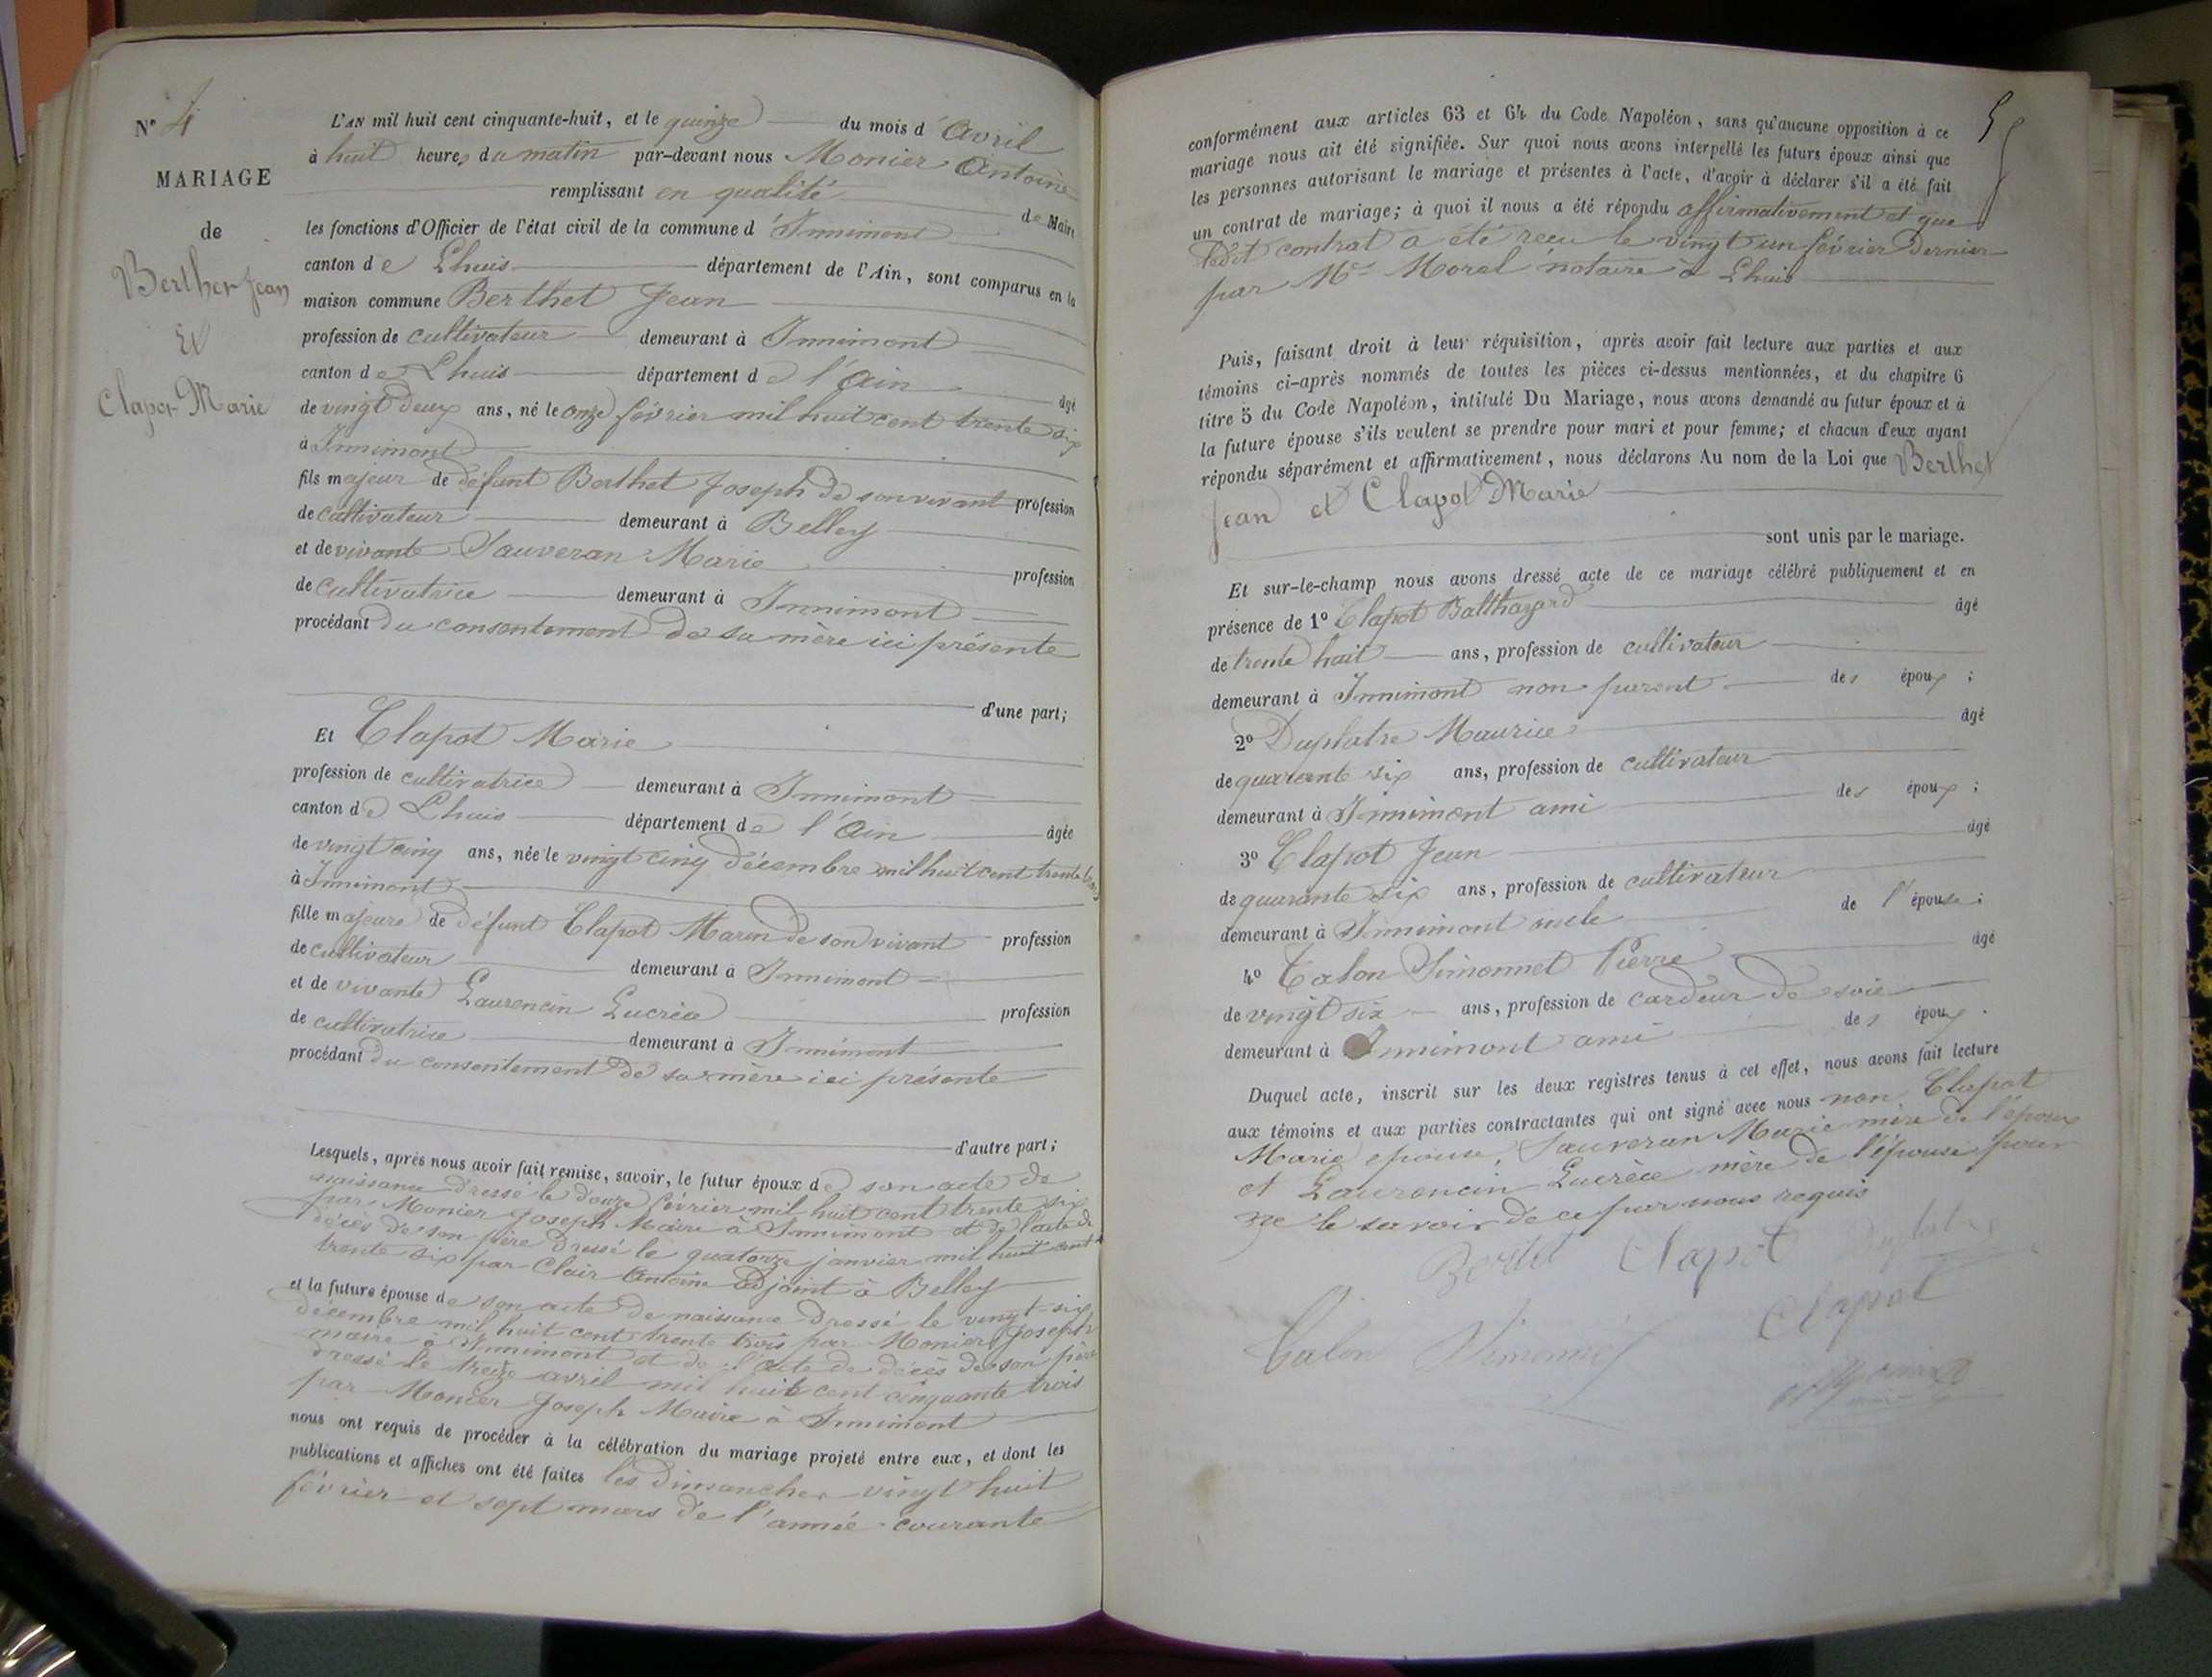 N° 4
MARIAGE
de
Berthet Jean
Et
Clapot Marie
L'AN mil huit cent cinquante-huit, et le quinze du mois d'Avril
à huit heures du matin par-devant nous Monier Antoine
remplissant en qualité de Maire
les fonctions d'Officier de l'état civil de la commune d'Innimont
canton de Lhuis département de l'Ain, sont comparus en la
maison commune Berthet Jean
profession de cultivateur demeurant à Innimont
canton de Lhuis département de l'Ain âgé
de vingt deux ans, né le onze février mil huit cent trente six
à Innimont
fils majeur de défunt Berthet Joseph de son vivant profession
de cultivateur demeurant à Belley
et de vivante Sauveran Marie profession
de cultivatrice demeurant à Innimont
procédant du consentement de sa mère ici présente
d'une part;
Et Clapot Marie
profession de cultivatrice demeurant à Innimont
canton de Lhuis département de l'Ain âgée
de vingt cinq ans, née le vingt cinq décembre mil huit cent trente
à Innimont
fille majeure de défunt Clapot Marin de son vivant profession
de cultivateur demeurant à Innimont
et de vivante Laurencin Lucrèce profession
de cultivatrice demeurant à Innimont
procédant du consentement de sa mère ici présente
d'autre part;
Lesquels, après nous avoir fait remise, savoir, le futur époux de son acte de
naissance dressé le douze février mil huit cent trente six
par Monier Joseph Maire à Innimont et de l'acte de
décès de son père dressé le quatorze janvier mil huit cent
trente six par Clair Antoine adjoint à Belley
et la future épouse de son acte de naissance dressé le vingt-six
décembre mil huit cent trente trois par Monier Joseph
maire à Innimont et de l'acte de décès de son père
dressé le treize avril mil huit cent cinquante trois
par Monier Joseph Maire à Innimont
nous ont requis de procéder à la célébration du mariage projeté entre eux, et dont les
publications et affiches ont été faites les dimanches vingt huit
février et sept mars de l'année courante
5
conformément aux articles 63 et 64 du Code Napoléon, sans qu'aucune opposition à ce
mariage nous ait été signifiée. Sur quoi nous avons interpellé les futurs époux ainsi que
les personnes autorisant le mariage et présentes à l'acte, d'avoir à déclarer s'il a été fait
un contrat de mariage; à quoi il nous a été répondu affirmativement et que
ledit contrat a été reçu le vingt un février dernier
par Me Morel notaire à Lhuis
Puis, faisant droit à leur réquisition, après avoir fait lecture aux parties et aux
témoins ci-après nommés de toutes les pièces ci-dessus mentionnées, et du chapitre 6
titre 5 du Code Napoléon, intitulé Du Mariage, nous avons demandé au futur époux et à
la future épouse s'ils veulent se prendre pour mari et pour femme; et chacun d'eux ayant
répondu séparément et affirmativement, nous déclarons Au nom de la Loi que Berthet
Jean et Clapot Marie
sont unis par le mariage.
Et sur-le-champ nous avons dressé acte de ce mariage célébré publiquement et en
présence de 1° Clapot Balthazard âgé
de trente huit ans, profession de cultivateur
demeurant à Innimont non parent des époux;
2° Duplatre Maurice âgé
de quarante six ans, profession de cultivateur
demeurant à Innimont ami des époux;
3° Clapot Jean âgé
de quarante six ans, profession de cultivateur
demeurant à Innimont oncle de l'épouse;
4° Talon Simonnet Pierre âgé
de vingt six ans, profession de cardeur de soie
demeurant à Innimont ami des époux.
Duquel acte, inscrit sur les deux registres tenus à cet effet, nous avons fait lecture
aux témoins et aux parties contractantes qui ont signé avec nous non Clapot
Marie épouse, Sauveran Marie mère de l'époux
et Laurencin Lucrèce mère de l'épouse pour
ne le savoir de ce par nous requis
Bertet Clapot Duplatre
Clapot
Talon Simonnet